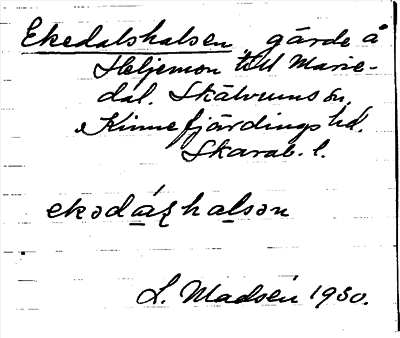 Ekedalshalsen, gärde å
Heljemon till Marie-
dal. Skälvums sn,
Kinnefjärdings hd.
Skarab. l.
ekədáɽhalsən
L. Madsén 1930.